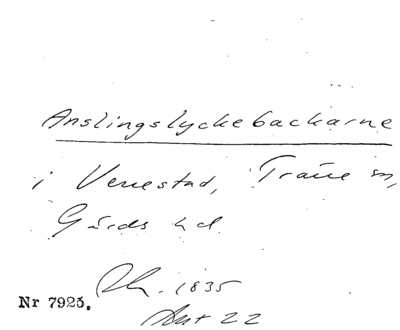 Anslingslyckebackarne
i Venestad, Träne sn,
Gärds hd.
1835
Nr 7925.
Akt 22